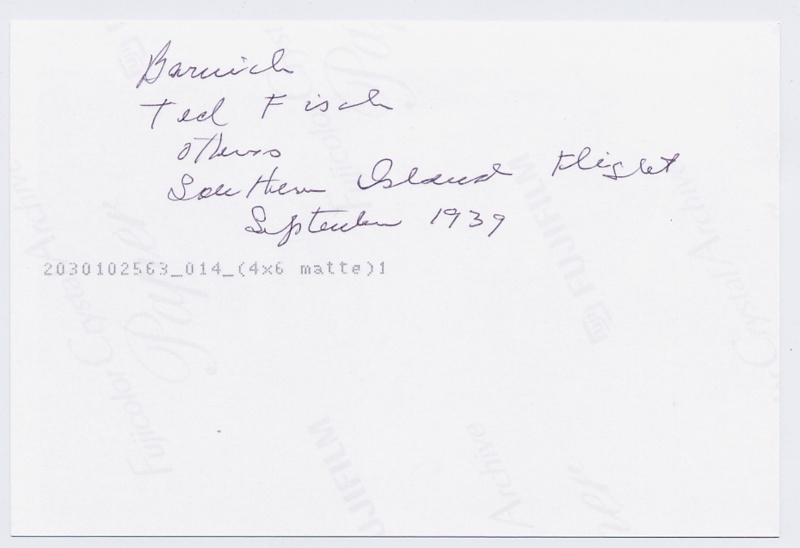 Barwich
Ted Fisch
others
Southern Island Flight
September 1939
2030102563_014_(4x6 matte)1
Fujicolor Crystal Archive
Paper
FUJIFILM
FUJIFILM
Archive
Crystal Archive